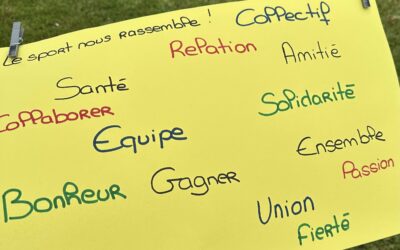 Le sport nous rassemble !
Collectif
Relation
Amitié
Santé
Solidarité
Collaborer
Equipe
Ensemble
Passion
Gagner
Bonheur
Union
Fierté